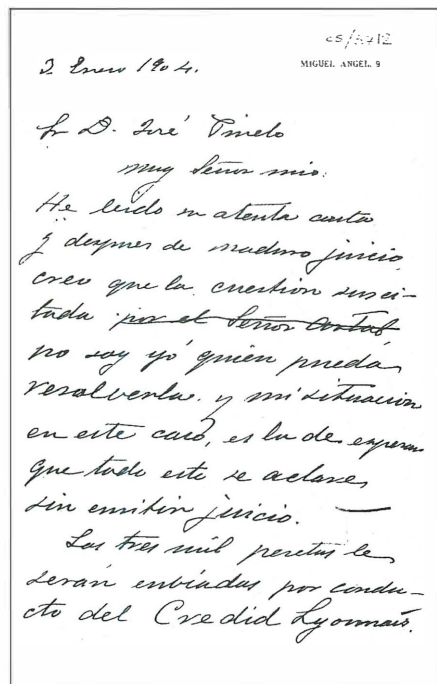 CS/A712
MIGUEL ANGEL. 9
3 Enero 1904.
Sr D. José Pinelo
Muy Señor mio:
He leido su atenta carta
y despues de maduro juicio,
creo que la cuestion susci-
tada por el Señor Artal,
no soy yó quien pueda
resolverla. y mi situacion
en este caso, es la de esperar
que todo esto se aclare,
sin emitir juicio. —
Las tres mil pesetas le
serán enbiadas por condu-
cto del Credid Lyonnais.